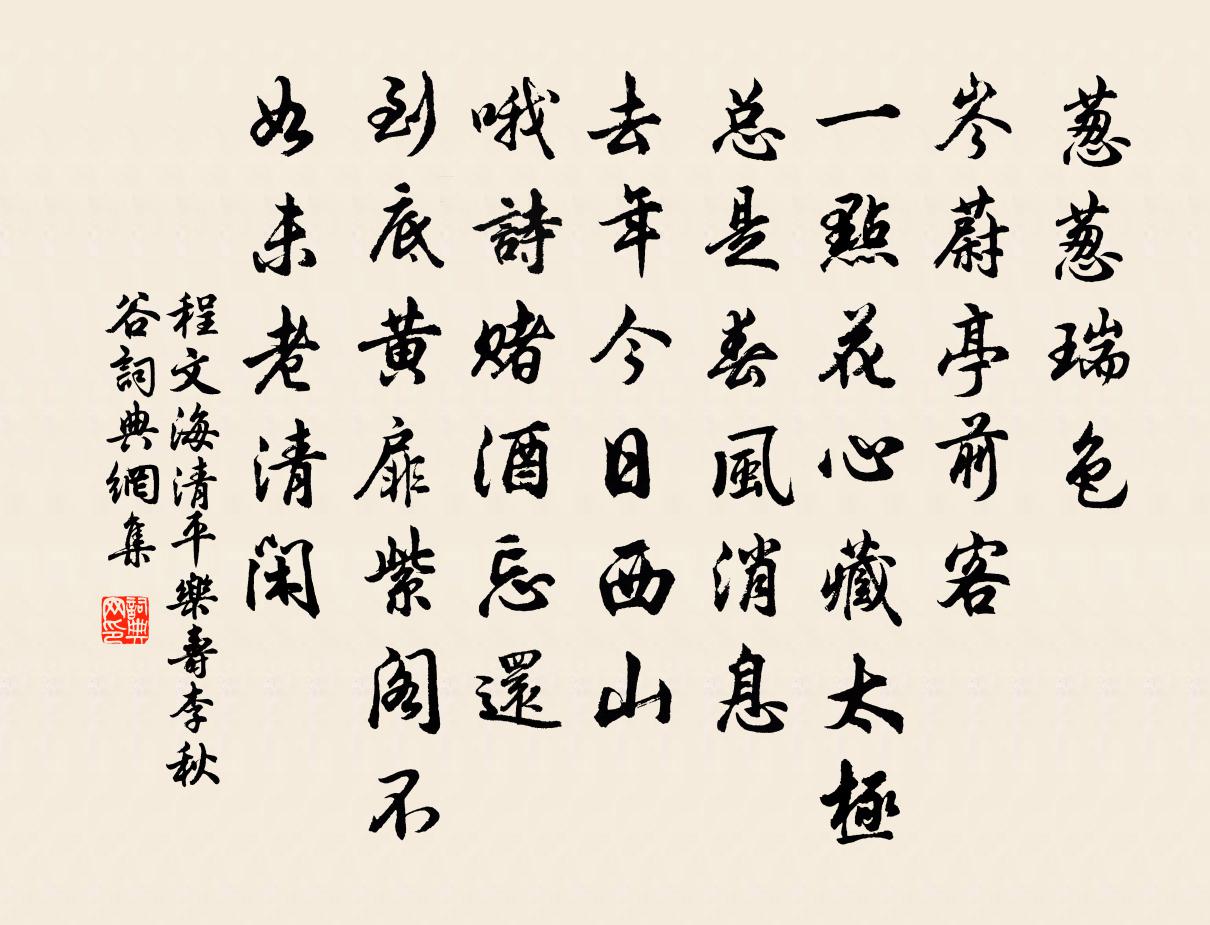 葱葱瑞色
岑蔚亭前客
一點花心藏太極
总是春風消息
去年今日西山
哦詩賭酒忘還
到底黄扉紫阁不
如未老清闲
程文海清平樂壽李秋
谷詞典網集
詞典网印